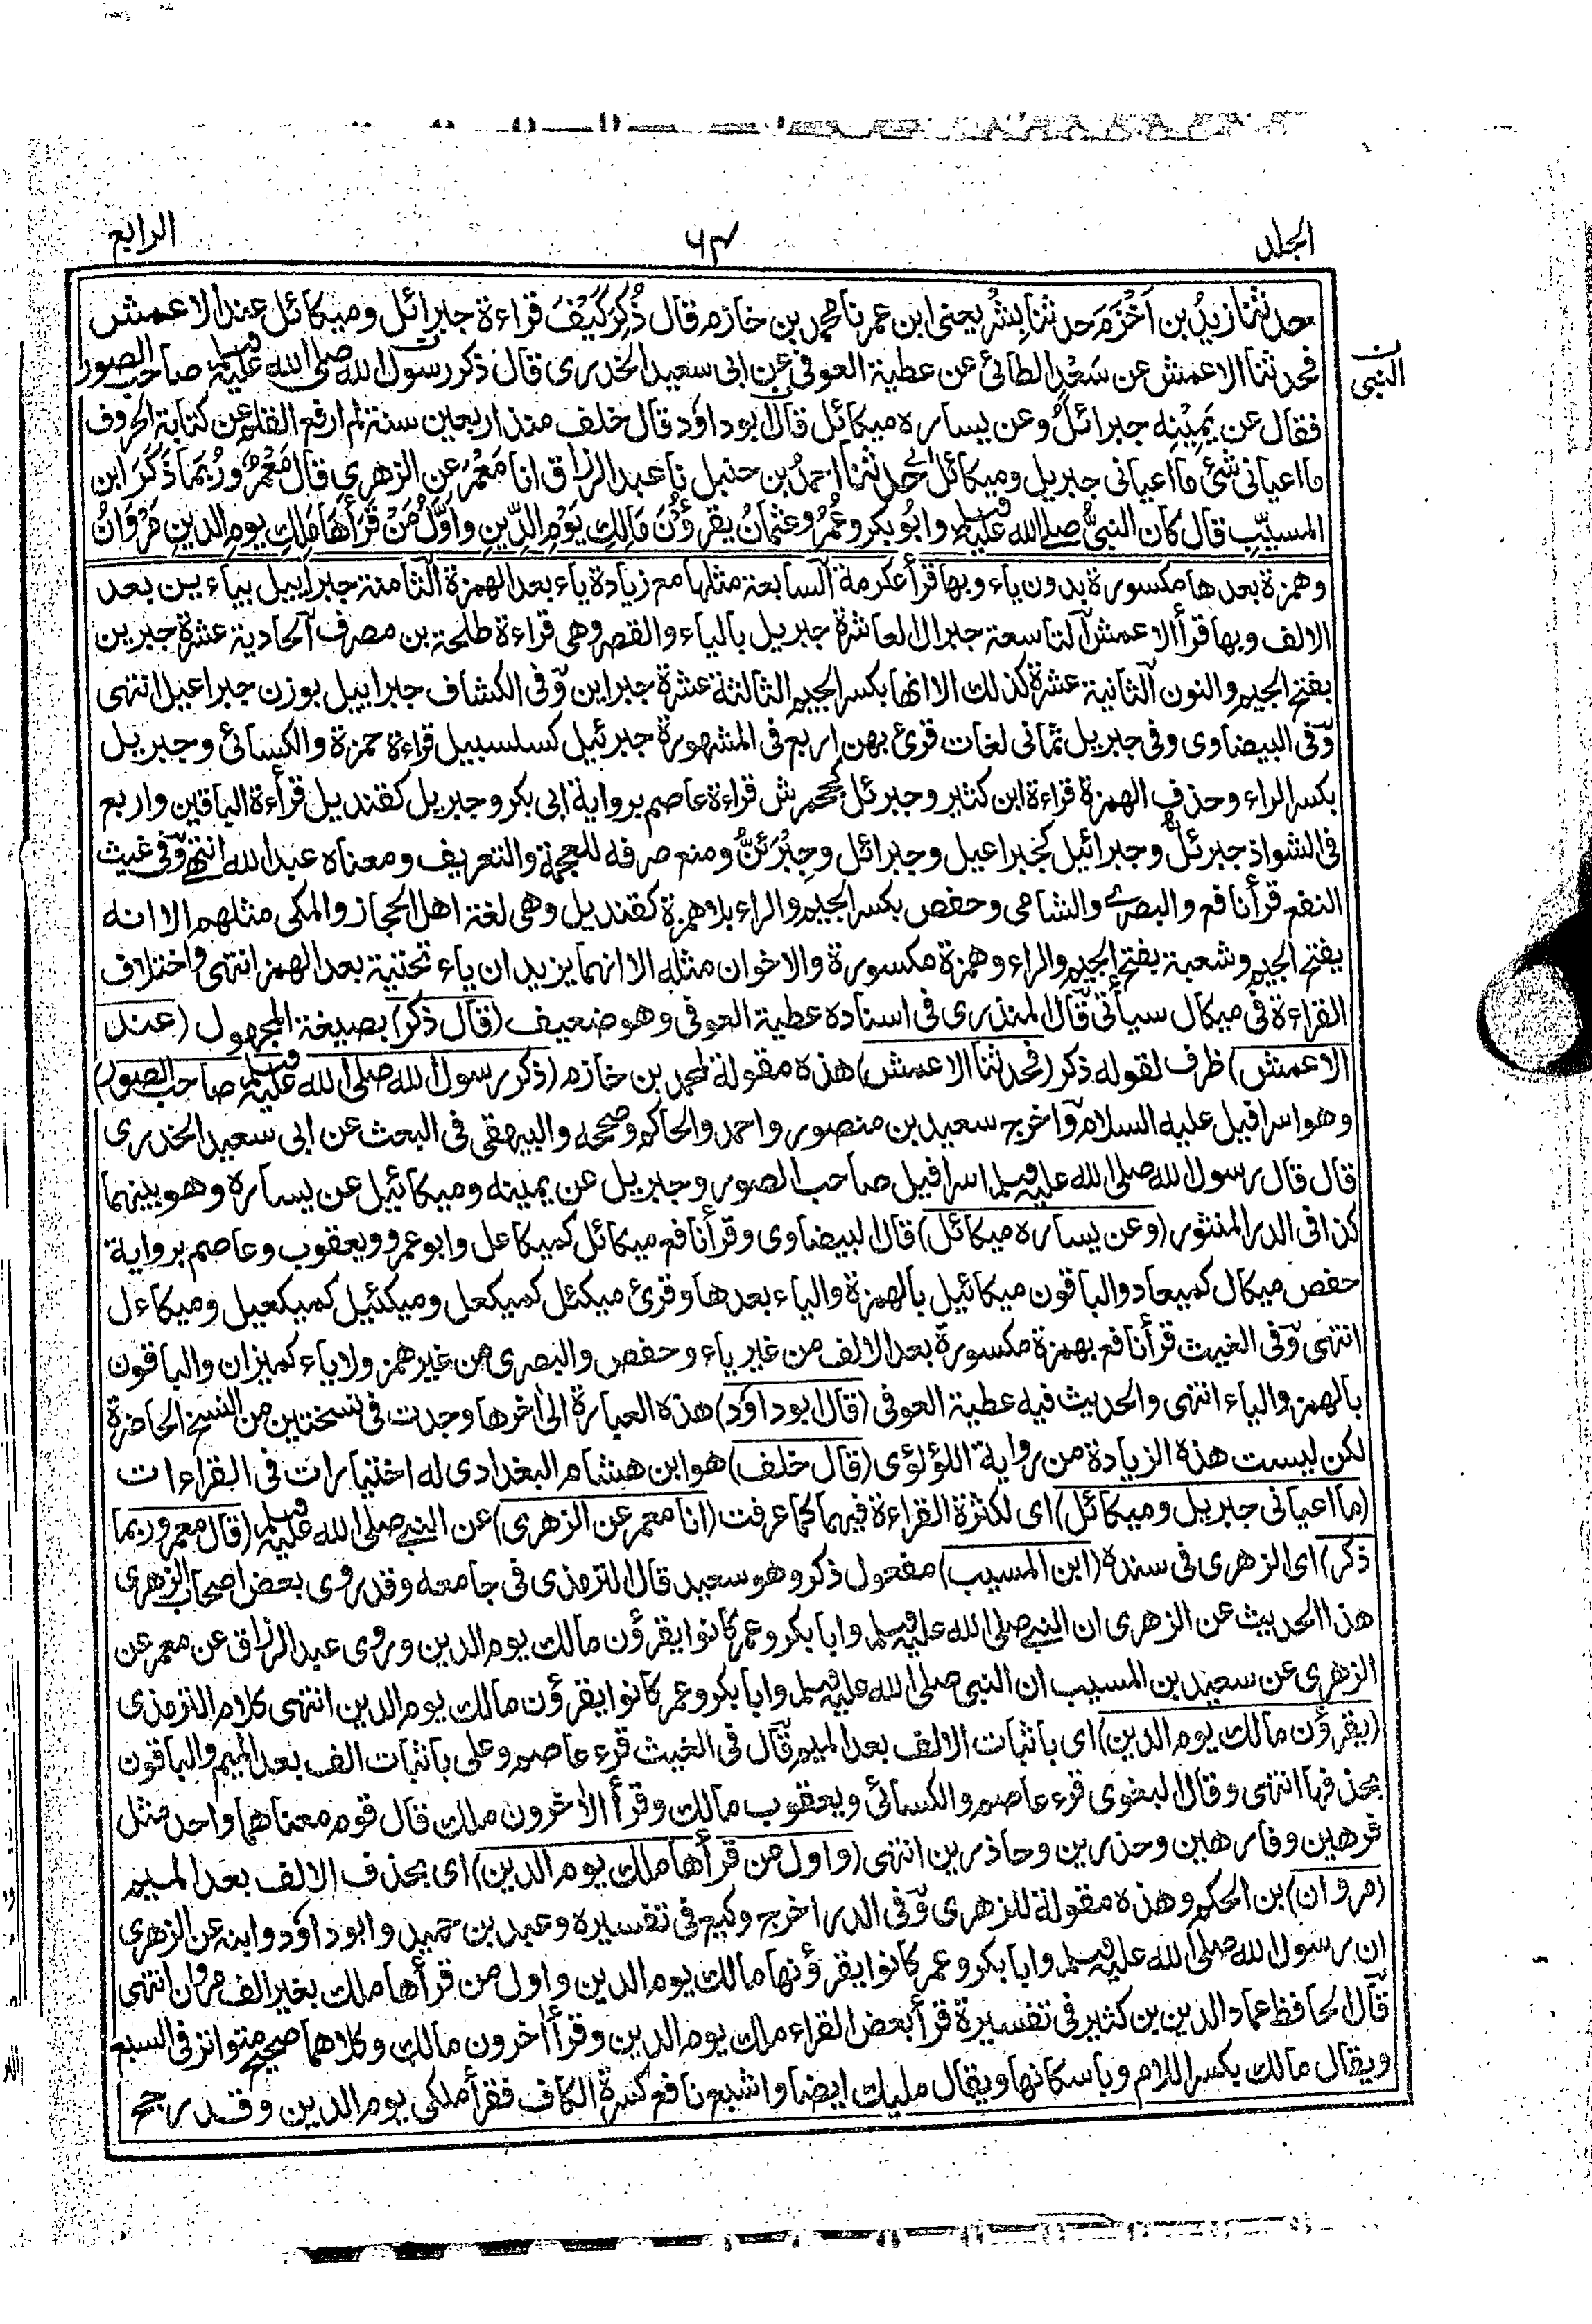 المجلد
٦٣
الرابع
حدثنا زيدُ بن اَخْزَمَ حدثنا بِشْرٌ يعنى ابن عمر نا محمد بن خازم قال ذُكِرَ كَيْفَ قراءة جبرائل وميكائل عند الاعمش
فحدثنا الاعمش عن سَعْدٍ الطائى عن عطية العوفى عن ابى سعيد الخدرى قال ذكر رسول الله صلى الله عليه وسلم صاحب الصور
النبى
فقال عن يَمِيْنِه جبرائلُ وعن يساره ميكائل قال ابوداؤد قال خلف منذ اربعين سنة لم ارفع القلم عن كتابة الحروف
ما اعيانى شئ ما اعيانى جبريل وميكائل حدثنا احمدُ بن حنبل نا عبد الرزاق انا مَعْمَر عن الزهرى قال مَعْمَرٌ ورُبَمَا ذَكَرَ ابن
المسيّبِ قال كان النبىُّ صلى الله عليه وسلم وابُو بكر وعُمَرُ وعثمانُ يقرؤُنَ مَالِكِ يَوْمِ الدِّينِ واَوَّلُ مَنْ قَرَأهَا مَلِكِ يومِ الدينِ مَرْوَانُ
وهمزة بعدها مكسورة بدون ياء وبها قرأ عكرمة السابعة مثلها مع زيادة ياء بعد الهمزة الثامنة جبراييل بياءين بعد
الالف وبها قرأ الاعمش التاسعة جبرال العاشرة جبريل بالياء والقصر وهى قراءة طلحة بن مصرف الحادية عشرة جبرين
بفتح الجيم والنون الثانية عشرة كذلك الا انها بكسر الجيم الثالثة عشرة جبراين وفى الكشاف جبراييل بوزن جبراعيل انتهى
وفى البيضاوى وفى جبريل ثمانى لغات قرئ بهن اربع فى المشهورة جبرئيل كسلسبيل قراءة حمزة والكسائى وجبريل
بكسر الراء وحذف الهمزة قراءة ابن كثير وجبرئل كجحمرش قراءة عاصم برواية ابى بكر وجبريل كقنديل قرأءة الباقين واربع
فى الشواذ جبرئلّ وجبرائيل كجبراعيل وجبرائل وجِبْرَئنُّ ومنع صرفه للعجمة والتعريف ومعناه عبد الله انتهى وفى غيث
النفع قرأ نافع والبصرى والشامى وحفص بكسر الجيم والراء بلا همزة كقنديل وهى لغة اهل الحجاز والمكى مثلهم الا انه
يفتح الجيم وشعبة بفتح الجيم والراء وهمزة مكسورة والاخوان مثله الا انهما يزيدان ياء تحتية بعد الهمز انتهى واختلاف
القراءة فى ميكال سيأتى قال المنذرى فى اسناده عطية العوفى وهو ضعيف (قال ذكر) بصيغة المجهول (عند
الاعمش) ظرف لقوله ذكر (فحدثنا الاعمش) هذه مقولة لمحمد بن خازم (ذكر رسول الله صلى الله عليه وسلم صاحب الصور)
وهو اسرافيل عليه السلام واخرج سعيد بن منصور واحمد والحاكم وصححه والبيهقى فى البعث عن ابى سعيد الخدرى
قال قال رسول الله صلى الله عليه وسلم اسرافيل صاحب الصور وجبريل عن يمينه وميكائيل عن يساره وهو بينهما
كذا فى الدر المنثور (وعن يساره ميكائل) قال البيضاوى وقرأ نافع ميكائل كميكاعل وابو عمرو ويعقوب وعاصم برواية
حفص ميكال كميعاد والباقون ميكائيل بالهمزة والياء بعدها وقرئ ميكئل كميكعل وميكئيل كميكعيل وميكاءل
انتهى وفى الغيث قرأ نافع بهمزة مكسورة بعد الالف من غير ياء وحفص والبصرى من غير همز ولا ياء كميزان والباقون
بالهمز والياء انتهى والحديث فيه عطية العوفى (قال ابوداؤد) هذه العبارة الى اخرها وجدت فى نسختين من النسخ الحاضرة
لكن ليست هذه الزيادة من رواية اللؤلؤى (قال خلف) هو ابن هشام البغدادى له اختيارات فى القراءات
(ما اعيانى جبريل وميكائل) اى لكثرة القراءة فيهما كما عرفت (انا معمر عن الزهرى) عن النبى صلى الله عليه وسلم (قال معمر وربما
ذكر) اى الزهرى فى سنده (ابن المسيب) مفعول ذكر وهو سعيد قال الترمذى فى جامعه وقد روى بعض اصحاب الزهرى
هذا الحديث عن الزهرى ان النبى صلى الله عليه وسلم وابا بكر وعمر كانوا يقرؤن مالك يوم الدين وروى عبد الرزاق عن معمر عن
الزهرى عن سعيد بن المسيب ان النبى صلى الله عليه وسلم وابا بكر وعمر كانوا يقرؤن مالك يوم الدين انتهى كلام الترمذى
(يقرؤن مالك يوم الدين) اى باثبات الالف بعد الميم قال فى الغيث قرء عاصم وعلى باثبات الف بعد الميم والباقون
بحذفها انتهى وقال البغوى قرء عاصم والكسائى ويعقوب مالك وقرأ الأخرون ملك قال قوم معناهما واحد مثل
فرهين وفارهين وحذرين وحاذرين انتهى (واول من قرأها ملك يوم الدين) اى بحذف الالف بعد الميم
(مروان) بن الحكم وهذه مقولة للزهرى وفى الدر اخرج وكيع فى تفسيره وعبد بن حميد وابو داؤد وابنه عن الزهرى
ان رسول الله صلى الله عليه وسلم وابا بكر وعمر كانوا يقرؤنها مالك يوم الدين واول من قرأها ملك بغير الف مروان انتهى
قال الحافظ عماد الدين بن كثير فى تفسيره قرأ بعض القراء ملك يوم الدين وقرأ أخرون مالك وكلاهما صحيح متواتر فى السبع
ويقال مالك بكسر اللام وباسكانها ويقال مليك ايضا واشبع نافع كسرة الكاف فقرأ ملكى يوم الدين وقد رجح